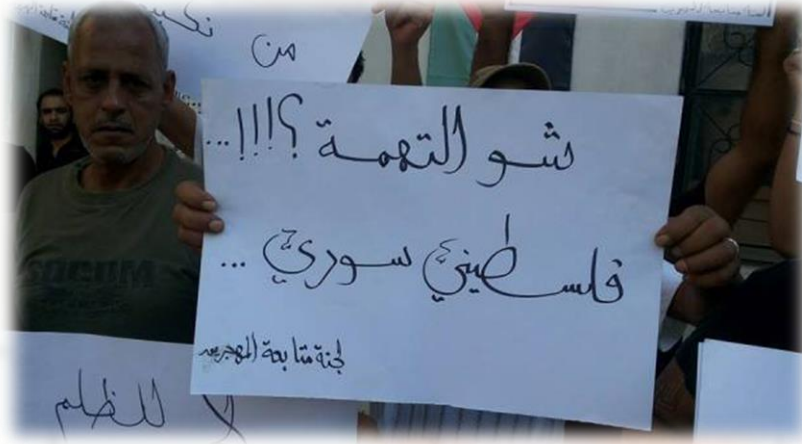 من
شو التهمة ؟!!!...
فلسطيني سوري ...
لجنة متابعة المهجرين
SOCOM
لا للظلم